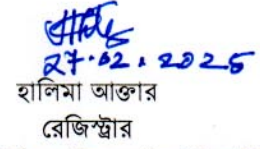 27.02.2025
হালিমা আক্তার
রেজিস্ট্রার